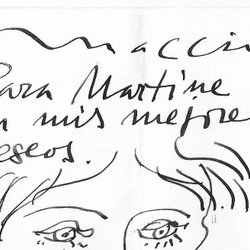 Para Martine
n mis mejore
eseos.